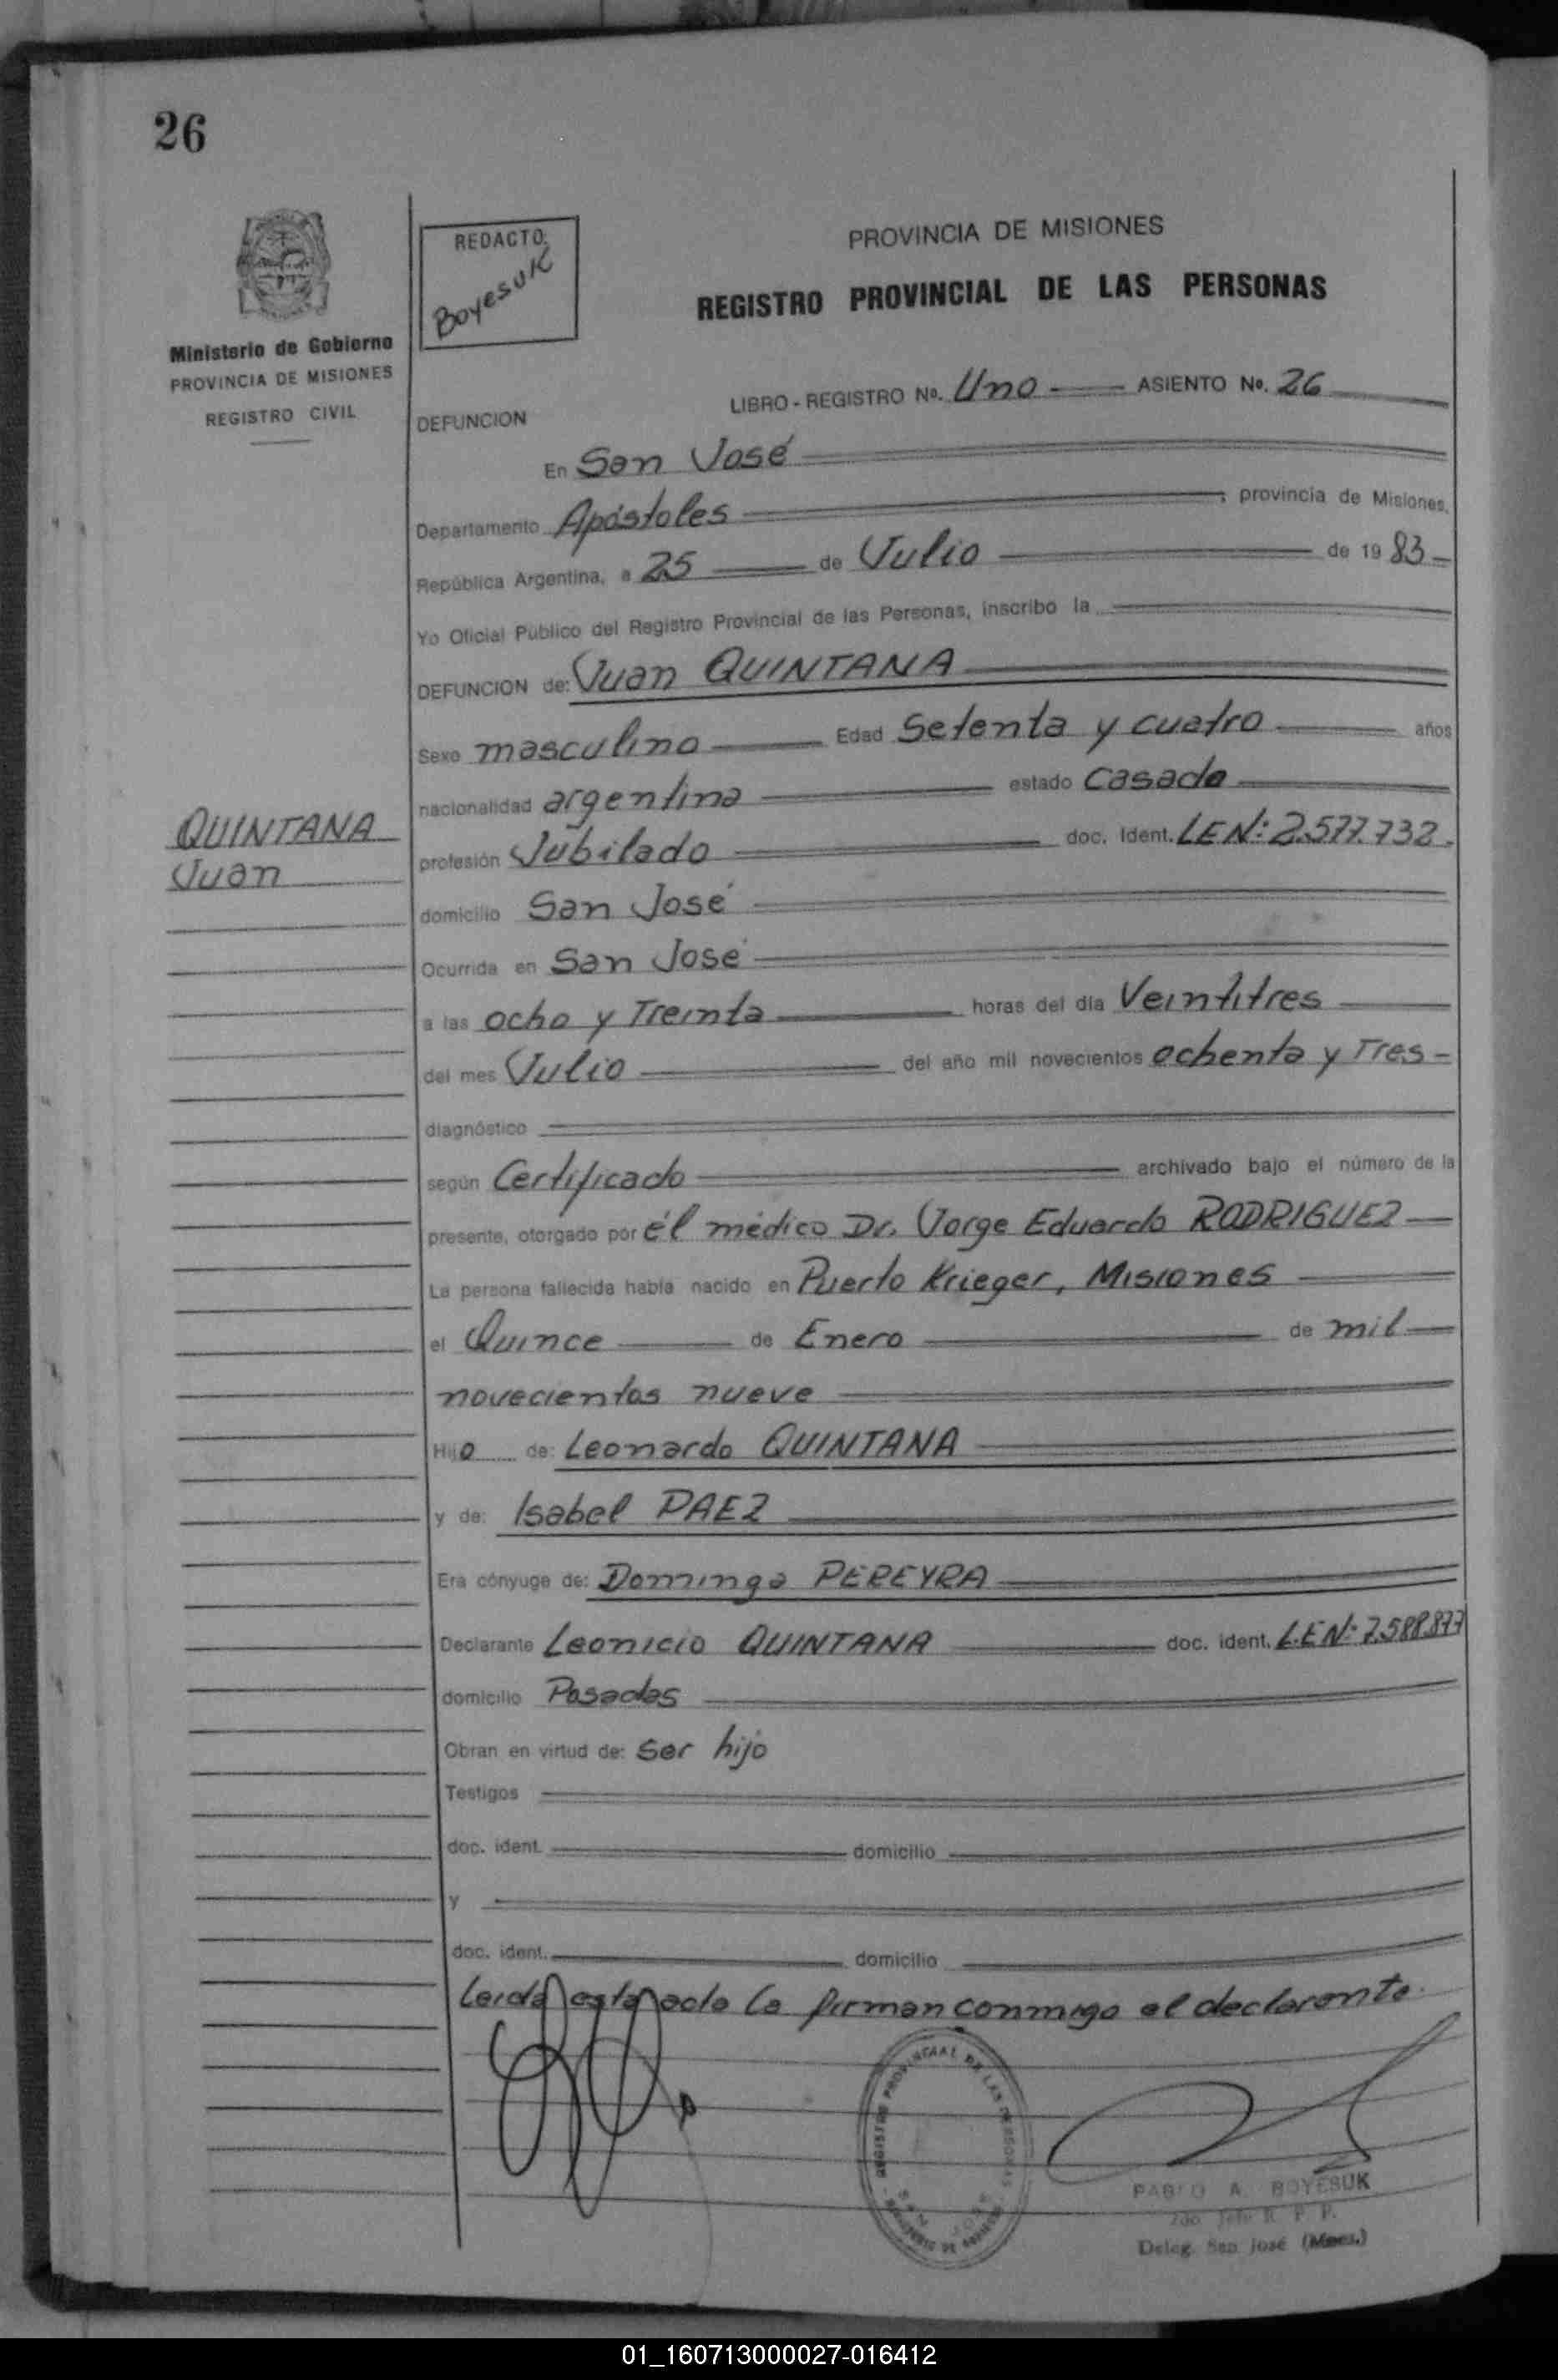 26
Ministerio de Gobierno
PROVINCIA DE MISIONES
REGISTRO CIVIL
REDACTO:
Boyesuk
PROVINCIA DE MISIONES
REGISTRO PROVINCIAL DE LAS PERSONAS
LIBRO - REGISTRO No. Uno ASIENTO No. 26
DEFUNCION
En San José
Departamento Apóstoles, provincia de Misiones,
República Argentina, a 25 de Julio de 1983
Yo Oficial Público del Registro Provincial de las Personas, inscribo la
DEFUNCION de: Juan QUINTANA
Sexo masculino Edad Setenta y cuatro años
nacionalidad argentina estado Casado
QUINTANA
Juan
profesión Jubilado doc. Ident. LEN: 2.577.732.
domicilio San José
Ocurrida en San José
a las ocho y Treinta horas del día Veintitres
del mes Julio del año mil novecientos ochenta y Tres
diagnóstico
según Certificado archivado bajo el número de la
presente, otorgado por él médico Dr. Jorge Eduardo RODRIGUEZ
La persona fallecida había nacido en Puerto Krieger, Misiones
el Quince de Enero de mil
novecientos nueve
Hijo de: Leonardo QUINTANA
y de: Isabel PAEZ
Era cónyuge de: Dominga PEREYRA
Declarante Leonicio QUINTANA doc. ident. L.EN: 7.588.877
domicilio Posadas
Obran en virtud de: ser hijo
Testigos
doc. ident. domicilio
y
doc. ident. domicilio
Leída esta acta la firman conmigo el declarante.
REGISTRO PROVINCIAL DE LAS PERSONAS
SAN JOSE
MINISTERIO DE GOBIERNO
PABLO A. BOYESUK
2do. Jefe R. P. P.
Deleg. San José (Mnes.)
01_160713000027-016412